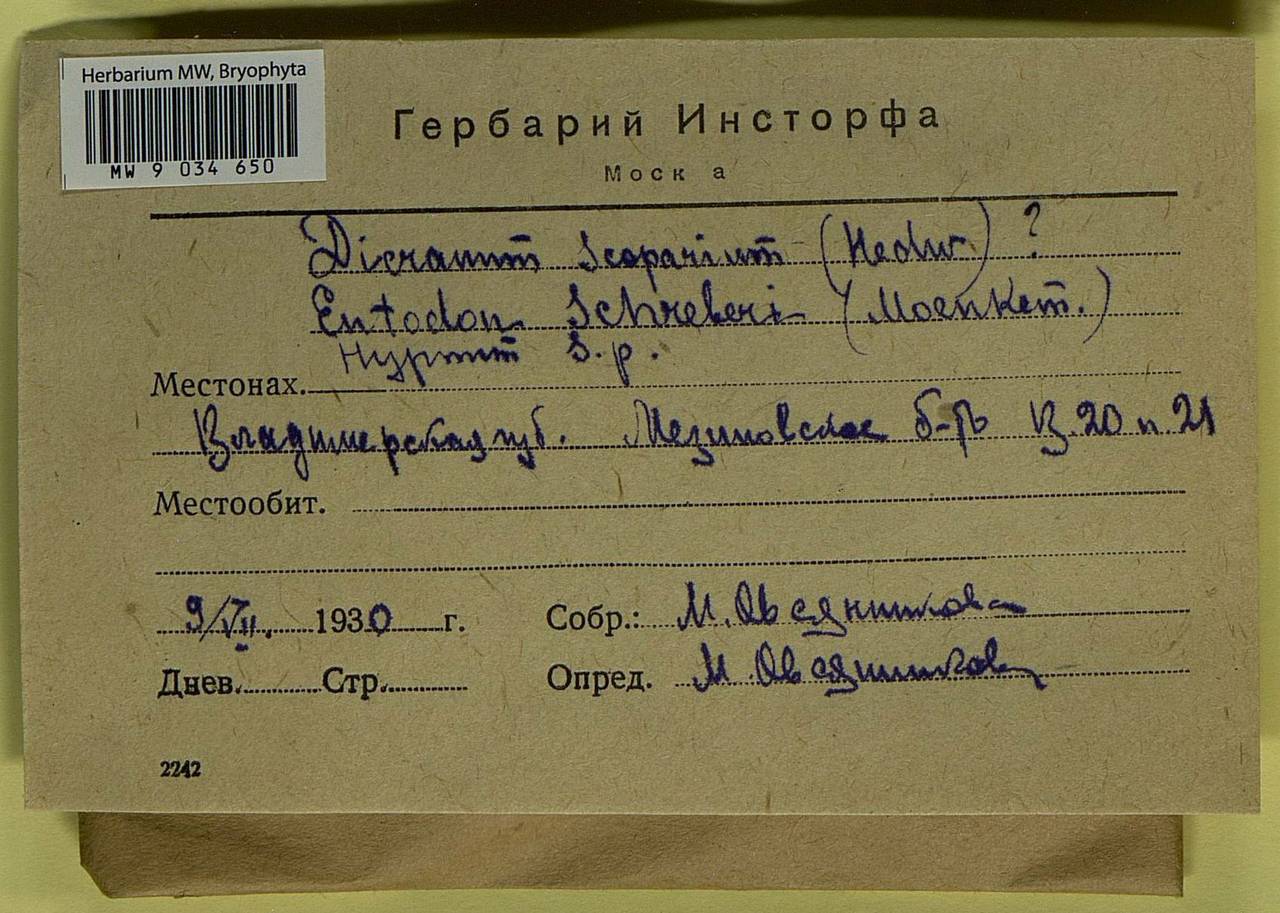 Herbarium MW, Bryophyta
MW 9 034 650
Гербарий Инсторфа
Моск а
Dicranum scoparium (Hedw.) ?
Entodon Schreberi (Moenkem.)
Hypnum s.p.
Местонах.
Владимирская губ. Мезиновское б-то 20 п 21
Местообит.
9/VII. 1930 г.
Собр.: М. Овсянникова
Днев. Стр.
Опред. М. Овсянникова
2242